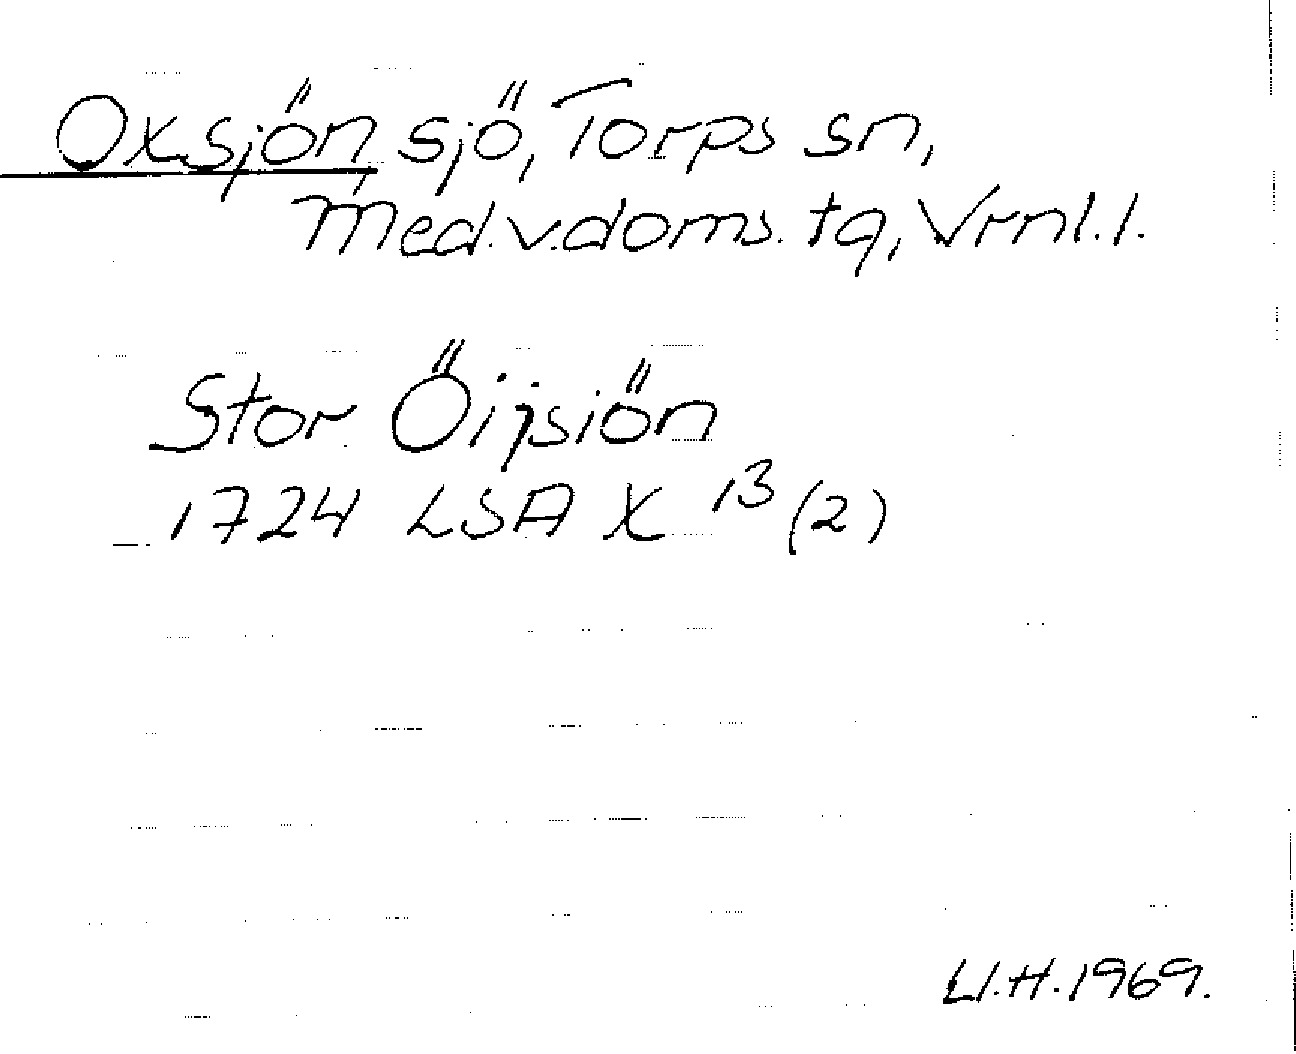 Oxsjön, sjö, Torps sn,
Med.v.doms. tg, Vrnl.l.
Stor Öijsiön
1724 LSA X 13 (2)
Ll.H.1969.